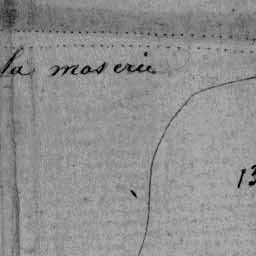 la moserie
13